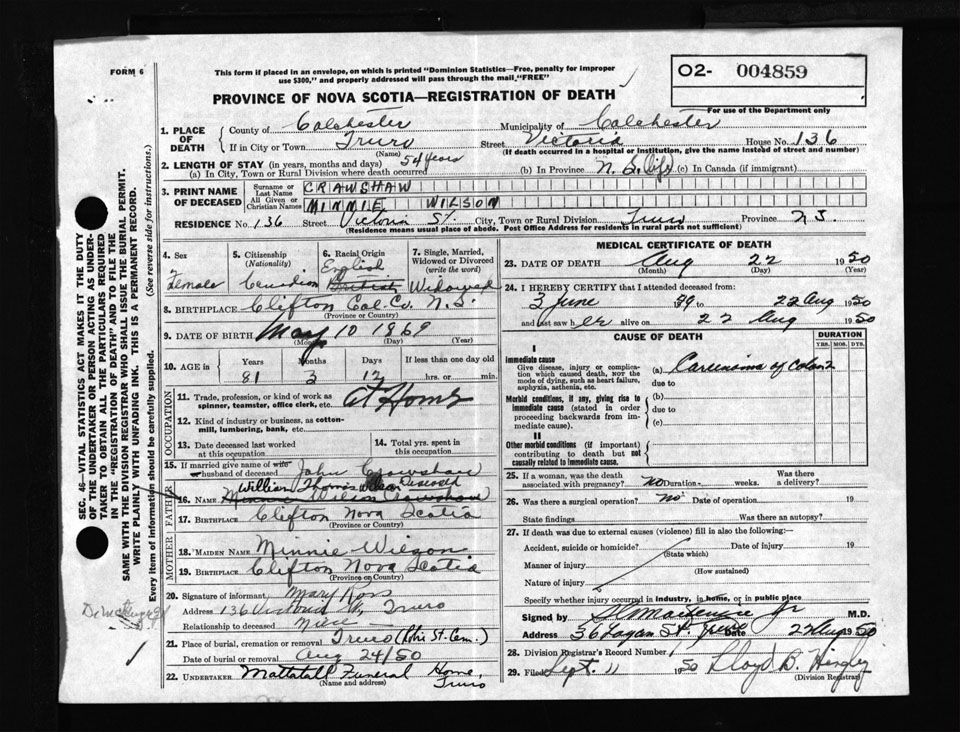 FORM 6
This form if placed in an envelope, on which is printed "Dominion Statistics—Free, penalty for improper use $300," and properly addressed will pass through the mail, "FREE"
O2- 004859
For use of the Department only
PROVINCE OF NOVA SCOTIA—REGISTRATION OF DEATH
1. PLACE OF DEATH { County of Colchester Municipality of Colchester
If in City or Town Truro Street Victoria House No. 136
(Name) (If death occurred in a hospital or institution, give the name instead of street and number)
2. LENGTH OF STAY (in years, months and days)
(a) In City, Town or Rural Division where death occurred 54 years (b) In Province N.S. life (c) In Canada (if immigrant)
3. PRINT NAME OF DECEASED { Surname or Last Name CRAWSHAW
All Given or Christian Names MINNIE WILSON
RESIDENCE No. 136 Street Victoria St. City, Town or Rural Division Truro Province N.S.
(Residence means usual place of abode. Post Office Address for residents in rural parts not sufficient)
4. Sex Female
5. Citizenship (Nationality) Canadian
6. Racial Origin English British
7. Single, Married, Widowed or Divorced (write the word) Widowed
8. BIRTHPLACE Clifton Col-Co. N.S.
(Province or Country)
9. DATE OF BIRTH May 10 1869
(Month) (Day) (Year)
10. AGE in { Years Months Days If less than one day old
81 3 12 hrs. or min.
OCCUPATION
11. Trade, profession, or kind of work as spinner, teamster, office clerk, etc. At Home
12. Kind of industry or business, as cotton-mill, lumbering, bank, etc.
13. Date deceased last worked at this occupation
14. Total yrs. spent in this occupation
15. If married give name of wife husband of deceased John Crowshaw
deceased
FATHER
William Thomas
16. NAME Minnie Wilson Crawshaw
17. BIRTHPLACE Clifton Nova Scotia
(Province or Country)
MOTHER
18. MAIDEN NAME Minnie Wilson
19. BIRTHPLACE Clifton Nova Scotia
(Province or Country)
20. Signature of informant Mary Ross
Address 136 Victoria St, Truro
Relationship to deceased Niece
21. Place of burial, cremation or removal Truro (Robie St. Cem.)
Date of burial or removal Aug 24/50
22. UNDERTAKER Mattatall Funeral Home, Truro
(Name and address)
MEDICAL CERTIFICATE OF DEATH
23. DATE OF DEATH Aug 22 1950
(Month) (Day) (Year)
24. I HEREBY CERTIFY that I attended deceased from:
3 June 1939 to 22 Aug 1950
and last saw her alive on 22 Aug 1950
CAUSE OF DEATH
DURATION
YRS. MOS. DYS.
I
Immediate cause
Give disease, injury or complication which caused death, NOT the mode of dying, such as heart failure, asphyxia, asthenia, etc.
(a) Carcinoma of Colon 2
due to
Morbid conditions, if any, giving rise to immediate cause (stated in order proceeding backwards from immediate cause).
(b)
due to
(c)
II
Other morbid conditions (if important) contributing to death but not causally related to immediate cause.
25. If a woman, was the death associated with pregnancy? no Duration weeks. Was there a delivery?
26. Was there a surgical operation? no Date of operation 19
State findings Was there an autopsy?
27. If death was due to external causes (violence) fill in also the following:
Accident, suicide or homicide? Date of injury 19
(State which)
Manner of injury
(How sustained)
Nature of injury
Specify whether injury occurred in industry, in home, or in public place
Signed by M.D.
Address 36 Logan St. Truro Date 22 Aug 1950
28. Division Registrar's Record Number
29. Filed Sept. 11 1950 Lloyd B. Hingley
(Division Registrar)
SEC. 46—VITAL STATISTICS ACT MAKES IT THE DUTY
OF THE UNDERTAKER OR PERSON ACTING AS UNDER-
TAKER TO OBTAIN ALL THE PARTICULARS REQUIRED
IN THE "REGISTRATION OF DEATH" AND TO FILE THE
SAME WITH THE DIVISION REGISTRAR WHO SHALL ISSUE THE BURIAL PERMIT.
WRITE PLAINLY WITH UNFADING INK. THIS IS A PERMANENT RECORD.
Every item of information should be carefully supplied. (See reverse side for instructions.)